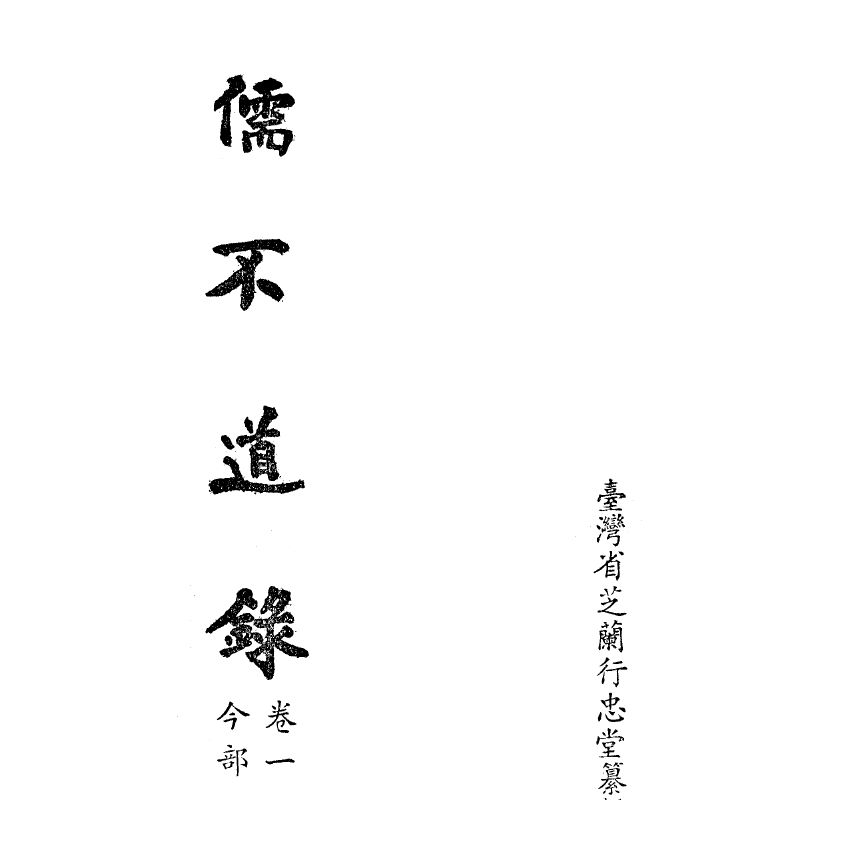 臺灣省芝蘭行忠堂纂
儒不道錄
卷一
今部